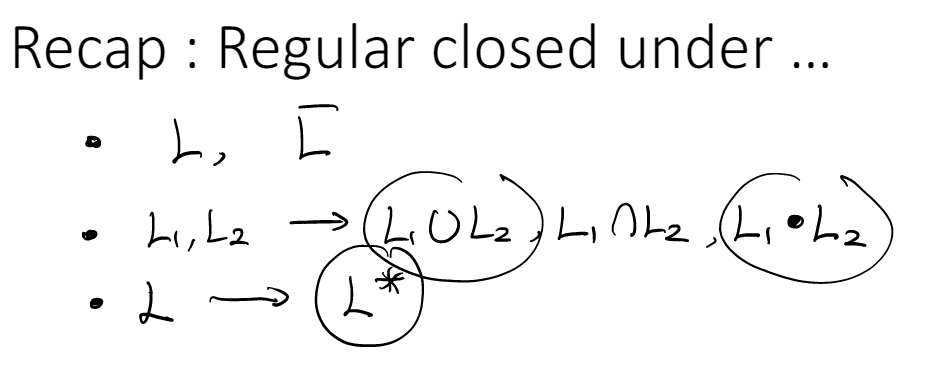 Recap : Regular closed under ...
• L, L̅
• L₁, L₂ → L₁ ∪ L₂, L₁ ∩ L₂, L₁ • L₂
• L → L*